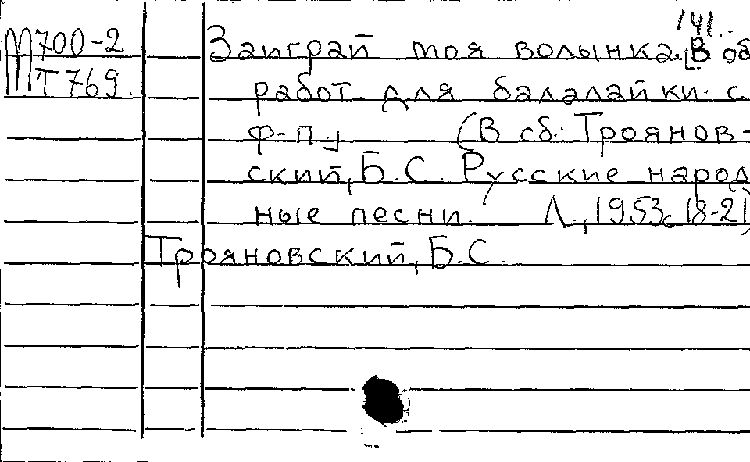 141.
М700-2 Заиграй моя волынка. [В об
Т769. работ для балалайки с
ф-п] (В сб: Троянов-
ский, Б.С. Русские народ
ные песни. Л, 1953, с 18-21)
Трояновский, Б.С.